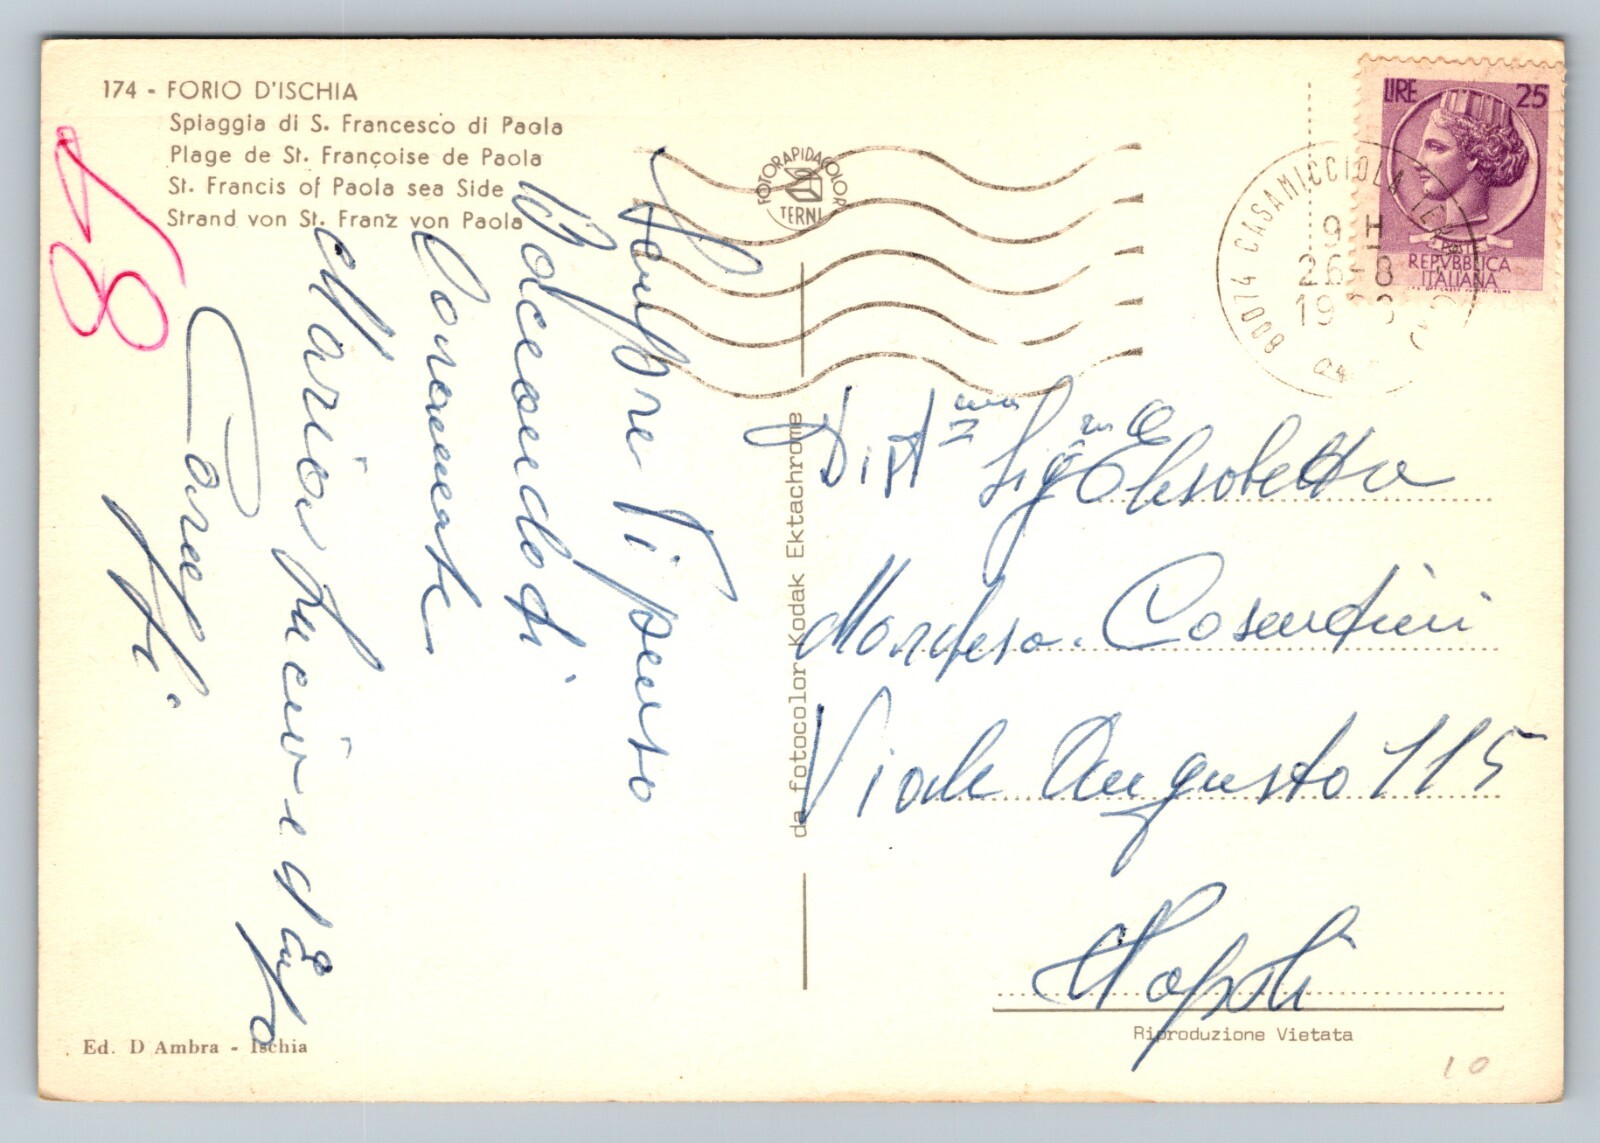 174 - FORIO D'ISCHIA
Spiaggia di S. Francesco di Paola
Plage de St. Françoise de Paola
St. Francis of Paola sea Side
Strand von St. Franz von Paola
FOTORAPIDACOLOR
TERNI
LIRE 25
POSTE
REPVBBLICA
ITALIANA
80074 CASAMICCIOLA TERME
9 H
26-8
19
Sempre Vi penso
Baciandoti
Caramente
Maria Lucia e
Care
da fotocolor Kodak Ektachrome
Dist.ma Sig.na Elisabetta
Cosentini
Viale Augusto 115
Napoli
Riproduzione Vietata
Ed. D Ambra - Ischia
10